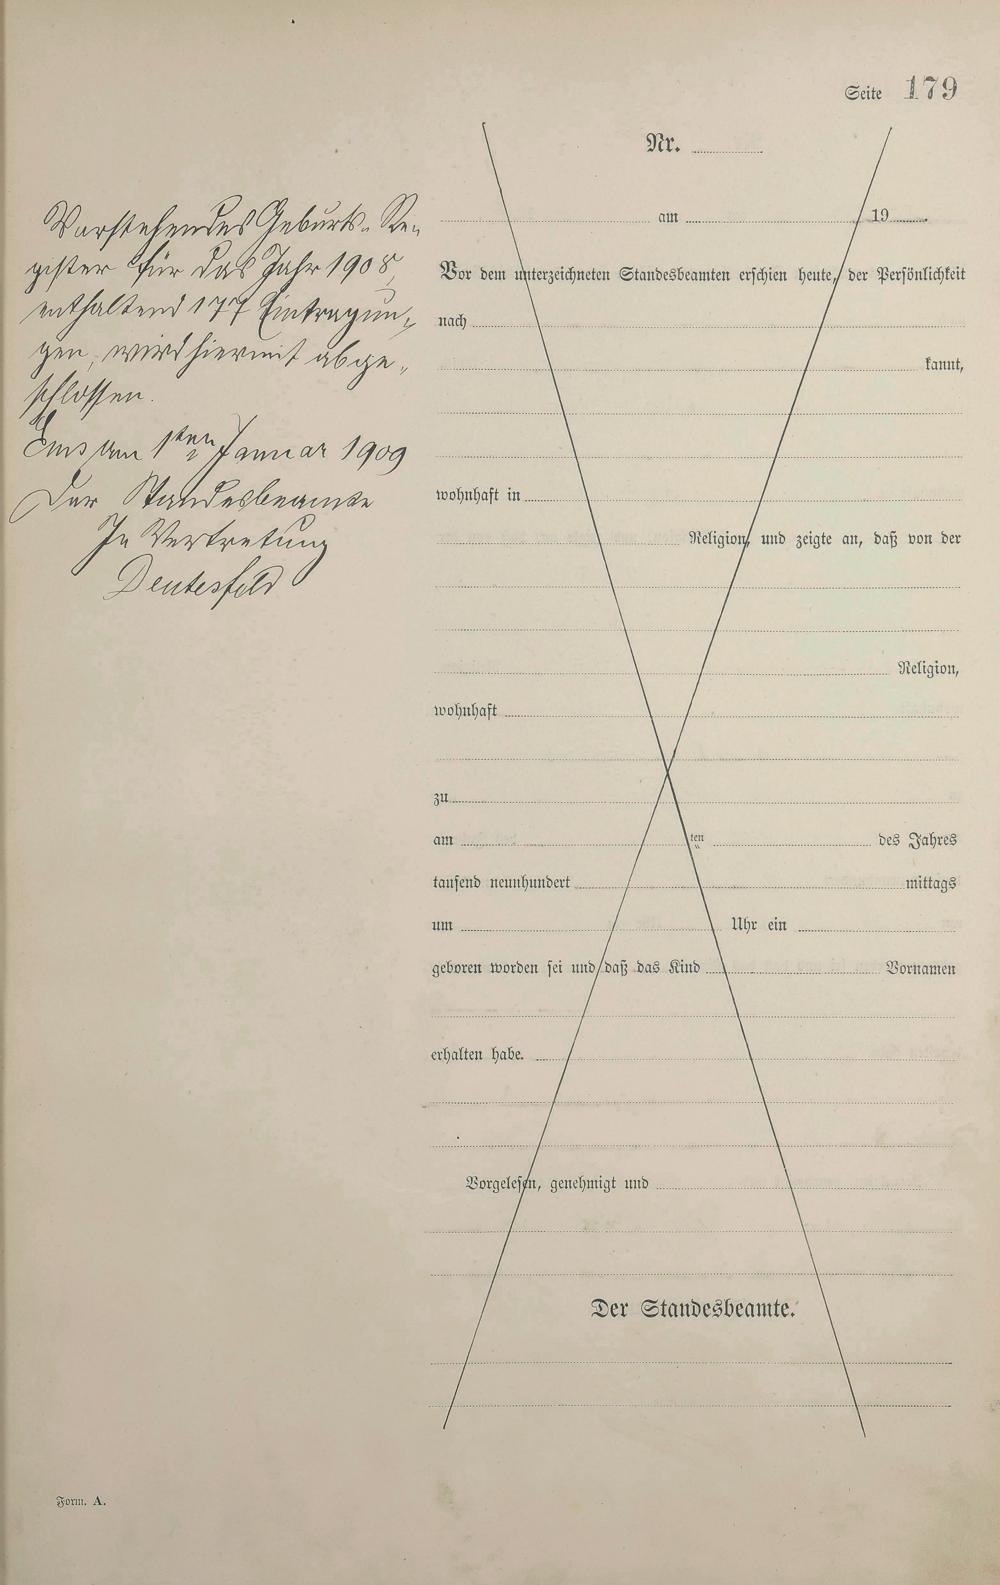 Seite 179
Nr.
Vorstehendes Geburts-Re-
gister für das Jahr 1908,
enthaltend 177 Eintragun-
gen, wird hiermit abge-
schlossen.
Ems am 1ten Januar 1909
Der Standesbeamte
In Vertretung
Deutesfeld
am 19
Vor dem unterzeichneten Standesbeamten erschien heute, der Persönlichkeit
nach
kannt,
wohnhaft in
Religion, und zeigte an, daß von der
Religion,
wohnhaft
zu
am ten des Jahres
tausend neunhundert mittags
um Uhr ein
geboren worden sei und daß das Kind Vornamen
erhalten habe.
Vorgelesen, genehmigt und
Der Standesbeamte.
Form. A.